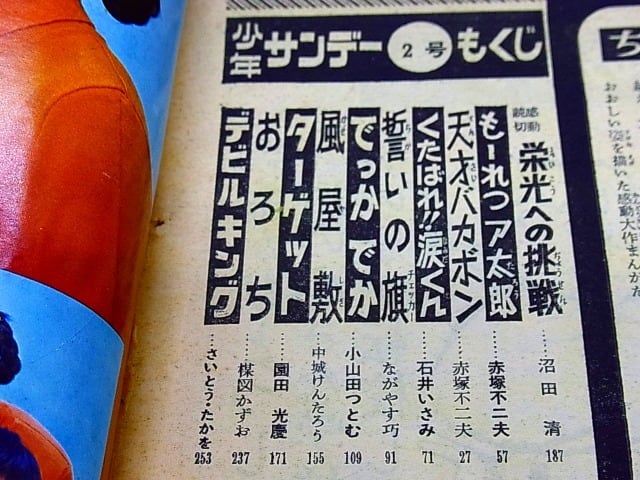 少年サンデー 2号 もくじ
感動読切 栄光への挑戦 えいこう ちょうせん 沼田清 187
もーれつア太郎 赤塚不二夫 57
天才バカボン てんさい 赤塚不二夫 27
くたばれ!!涙くん なみだ 石井いさみ 71
誓いの旗 ちか チェッカー ながやす巧 91
でっかでか 小山田つとむ 109
風屋敷 かぜやしき 中城けんたろう 155
ターゲット 園田光慶 171
おろち 楳図かずお 237
デビルキング さいとう・たかを 253
ち
おおしい姿を描いた感動大作まんがた